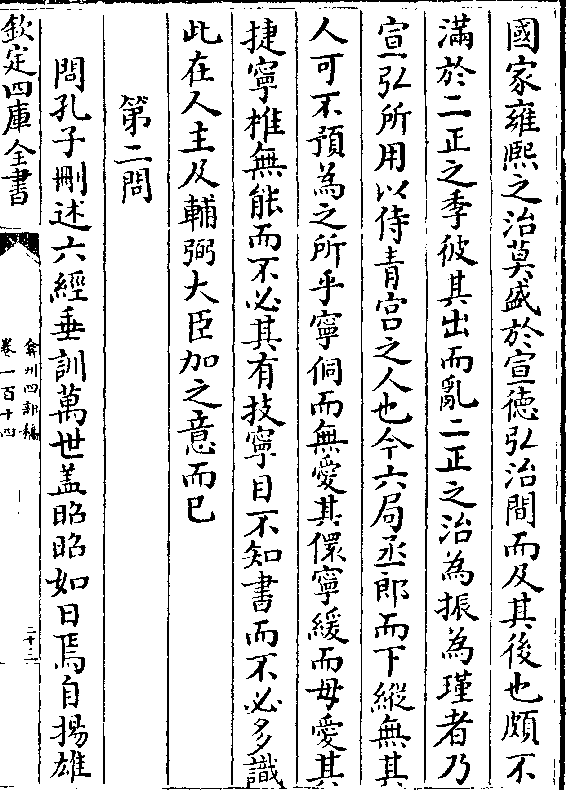 國家雍熙之治莫盛於宣徳弘治間而及其後也頗不
滿於二正之季彼其出而亂二正之治為振為瑾者乃
宣弘所用以侍青宫之人也今六局丞郎而下縱無其
人可不預為之所乎寧侗而無愛其儇寧緩而毋愛其
捷寧椎無能而不必其有技寧目不知書而不必多識
此在人主及輔弼大臣加之意而已
第二問
問孔子刪述六經垂訓萬世盖昭昭如日焉自揚雄
欽定四庫全書
弇州四部稿
卷一百十四
二十三